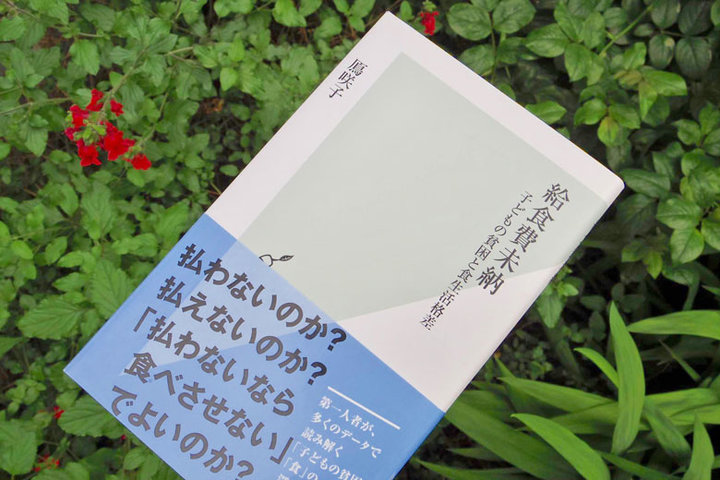 給食費未納
子どもの貧困と食生活格差
鳫咲子
払わないのか?
払えないのか?
「払わないなら
食べさせない」
でよいのか?
第一人者が、
多くのデータで
読み解く
「子どもの貧困
「食」の